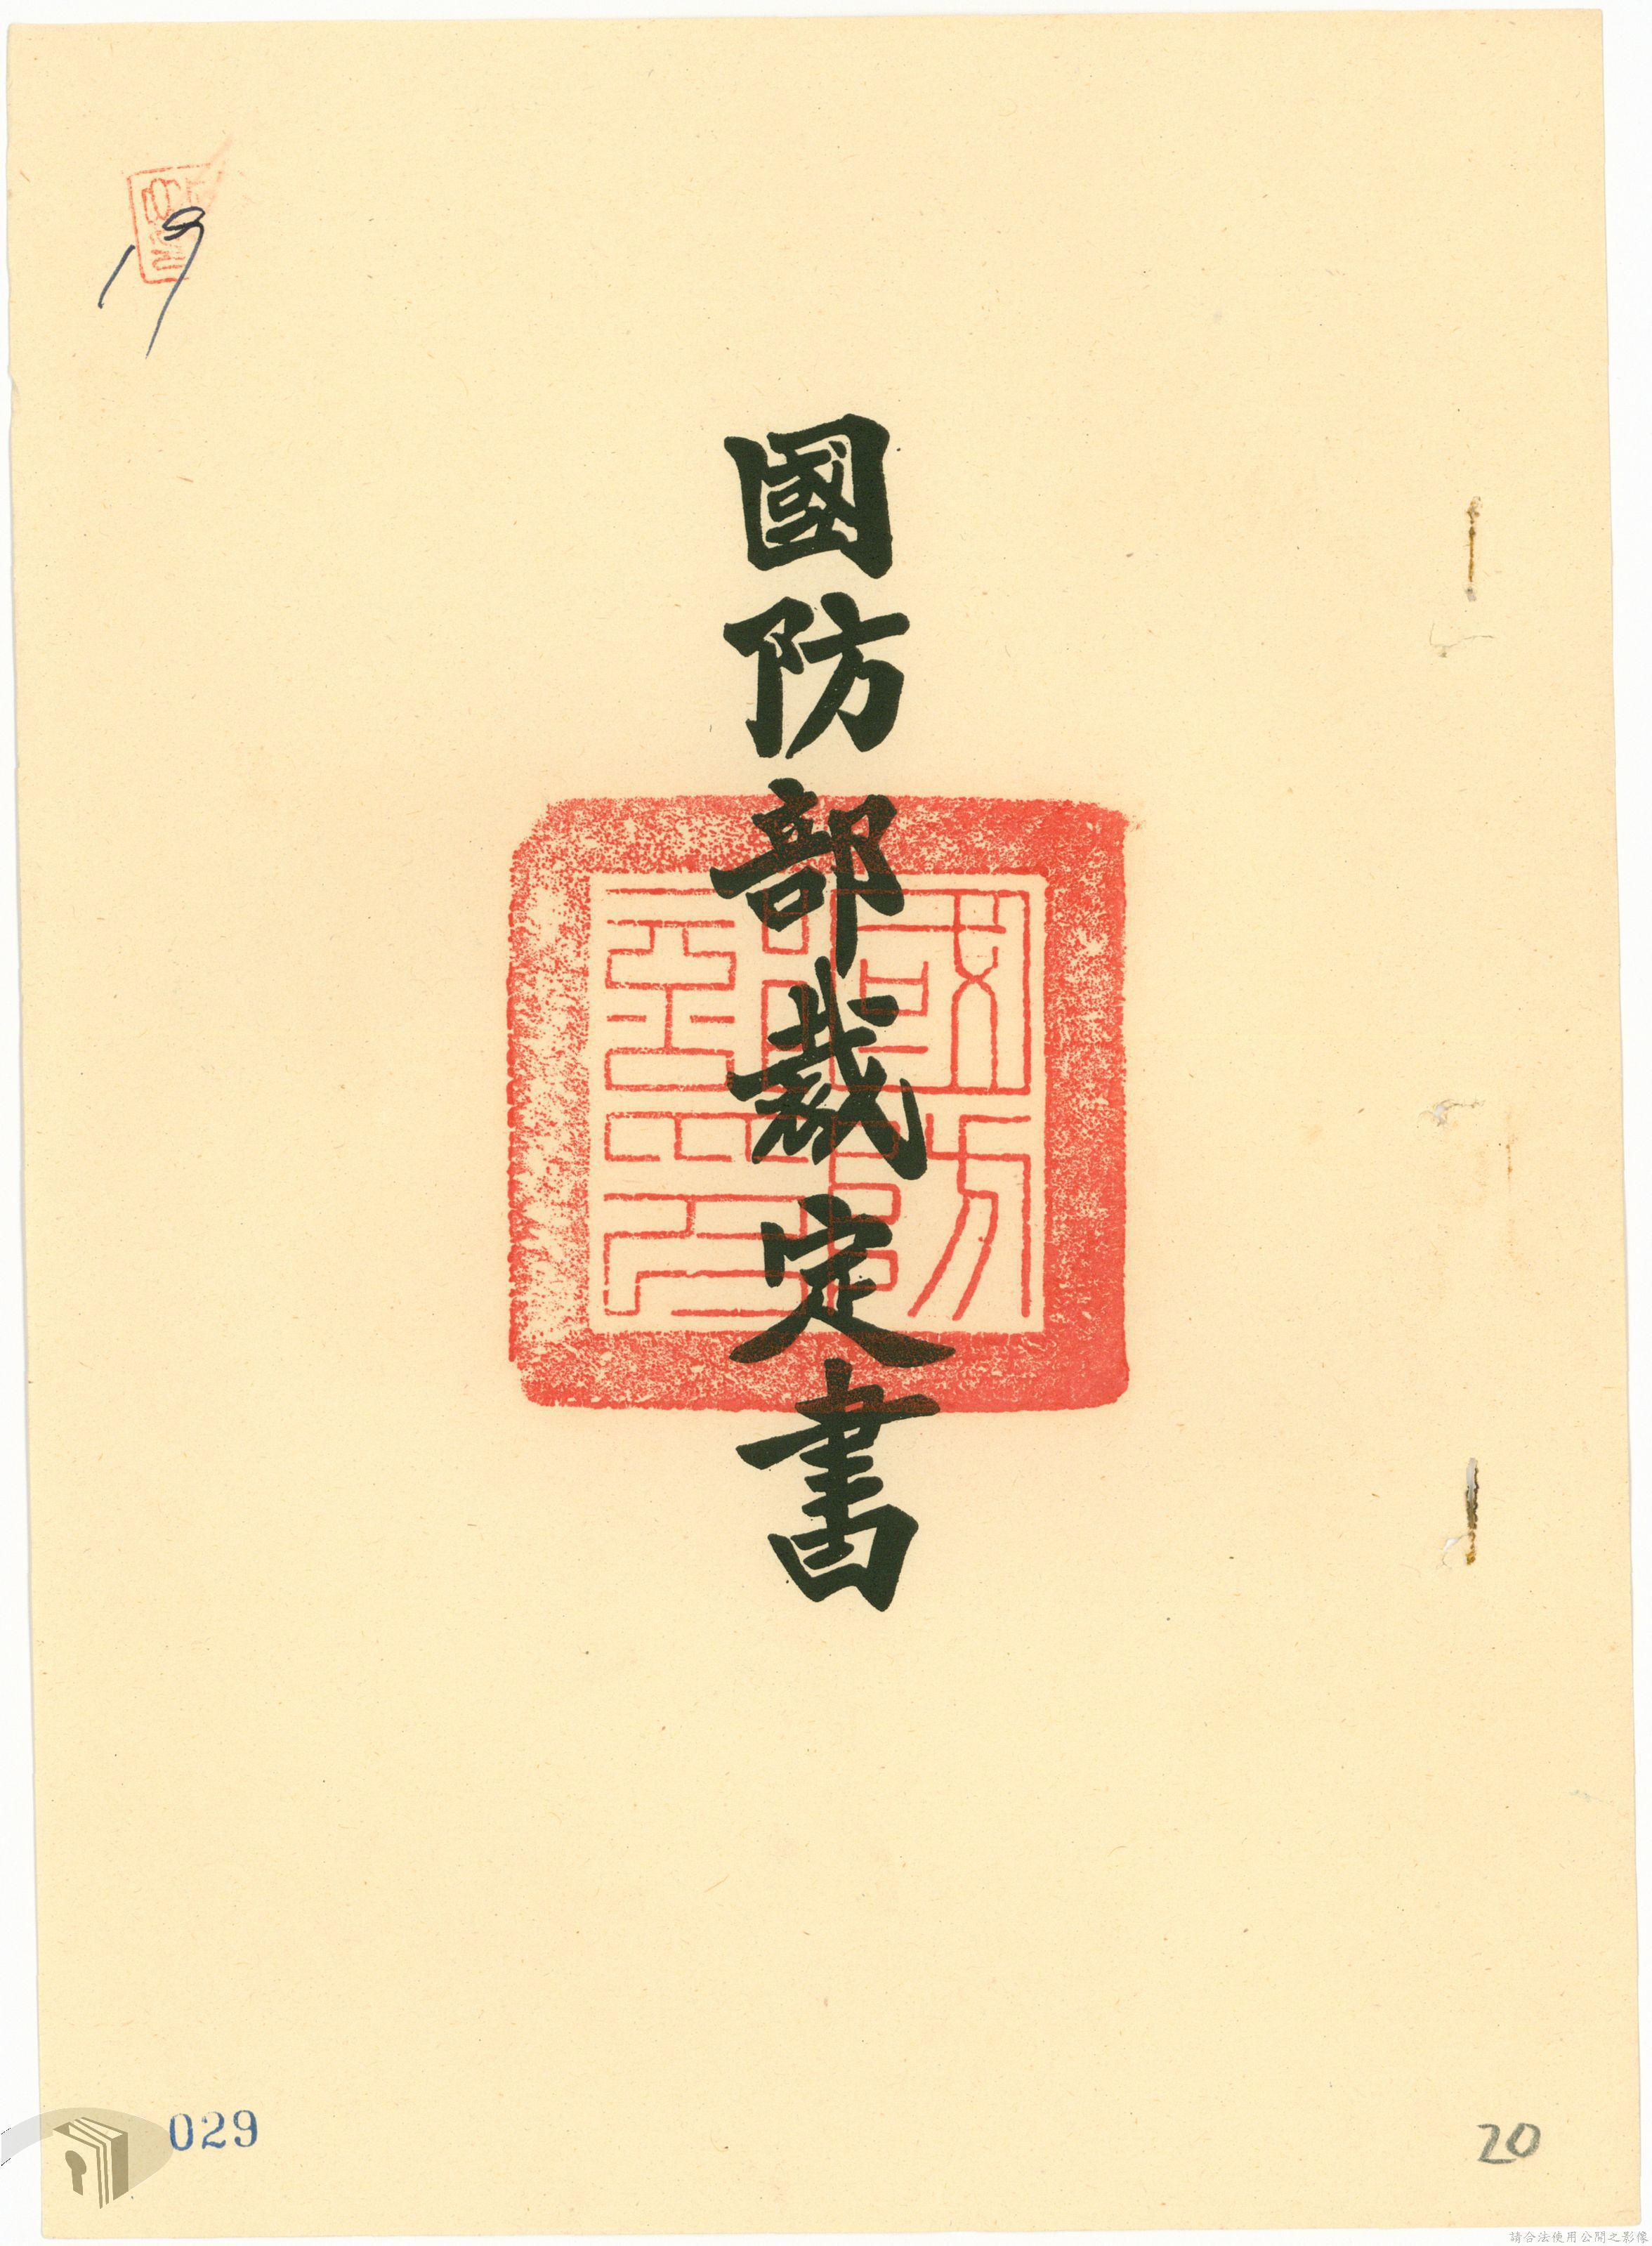 19
國防部裁定書
國防部印
029
20
請合法使用公開之影像